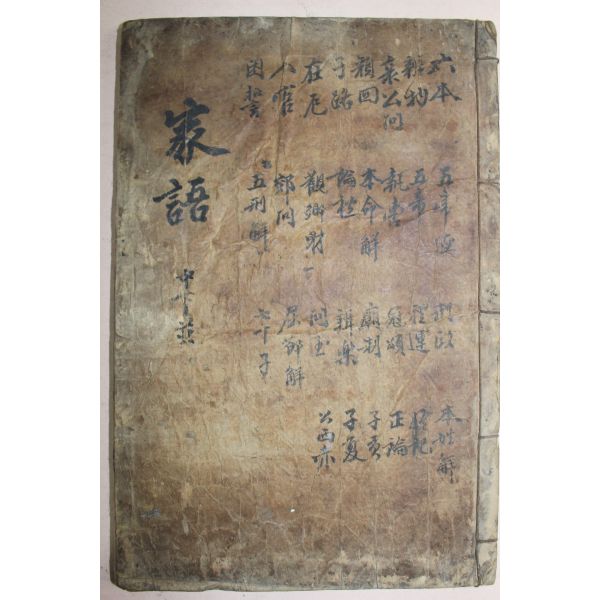 六本 五帝德 刑政 本姓解
辨物 五帝 禮運 終記
哀公問 執轡 冠頌 正論
顔回 本命解 廟制 子貢
子路 論禮 辨樂 子夏
在厄 觀鄉射 問玉 公西赤
入官 郊問 屈節解
困誓 五刑解 七十子
家語 中下